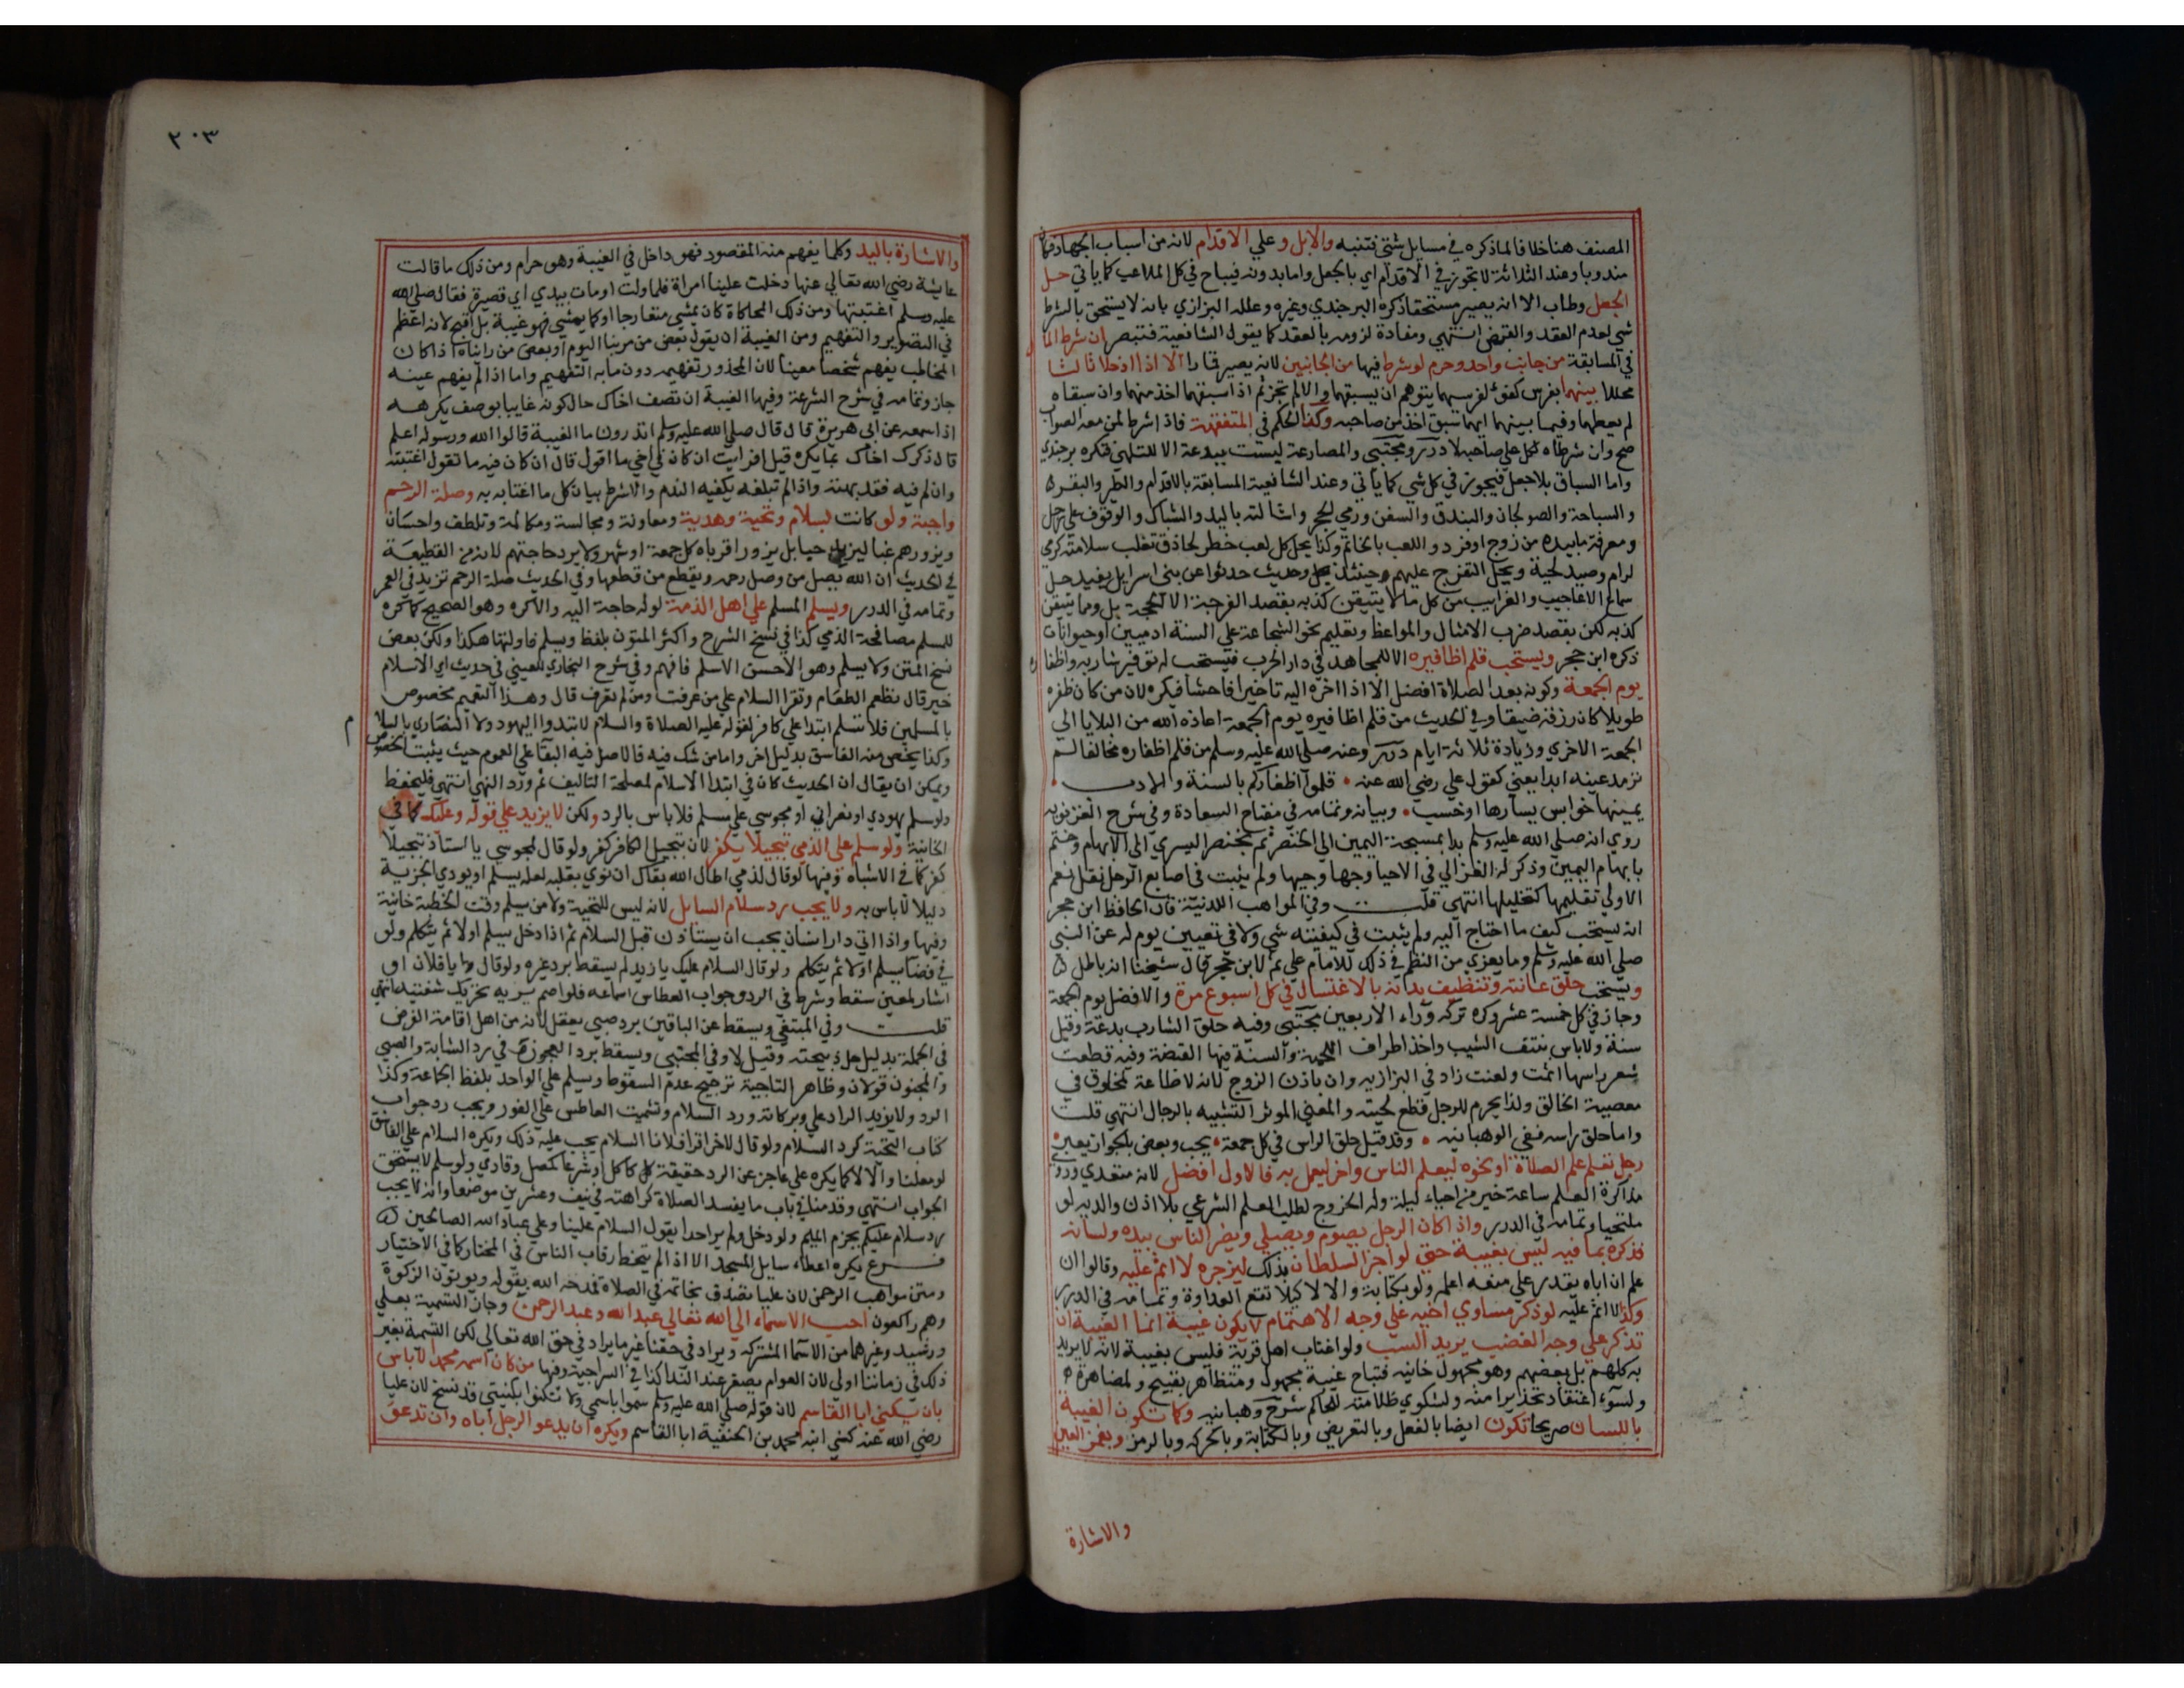 المصنف هنا خلافا لما ذكره في مسايل شتى فتنبه والابل وعلي الاقدام لانه من اسباب الجهاد فكان
مندوبا وعند الثلاثة لا تجوز في الاقدام اي بالجعل واما بدونه فيباح في كل الملاعب كما ياتي حل
الجعل وطاب الا انه يصير مستحقا ذكره البرجندي وغيره وعلله البزازي بانه لا يستحق بالشرط
شي لعدم العقد والقبض انتهي ومفاده لزومه بالعقد كما يقول الشافعية فتبصر ان شرط المال
في المسابقة من جانب واحد وحرم لو شرط فيها من الجانبين لانه يصير قمارا الا اذا ادخلا ثالثا
محللا بينهما بفرس كفئ لفرسيهما يتوهم ان يسبقهما والا لم تجز ثم اذا سبقهما اخذ منهما وان سبقاه
لم يعطهما وفيما بينهما ايهما سبق اخذ من صاحبه وكذا الحكم في المتفقهة فاذا شرط لمن معه الصواب
صح وان شرطاه لكل علي صاحبه لا درر ومجتبي والمصارعة ليست ببدعة الا للتلهي فتكره برجندي
واما السباق بلا جعل فيجوز في كل شي كما ياتي وعند الشافعية المسابقة بالاقدام والطير والبقر
والسباحة والصولجان والبندق والسفن ورمي الحجر واشالته باليد والشباك والوقوف علي رجل
ومعرفة ما بيده من زوج او فرد واللعب بالخاتم وكذا يحل كل لعب خطر لحاذق تغلب سلامته كرمي
لرام وصيد لحية ويحل التفرج عليهم حينئذ وحديث حدثوا عن بني اسرايل يفيد حل
سماع الاعاجيب والغرايب من كل ما لا يتيقن كذبه بقصد الفرجة لا الحجة بل وما يتيقن
كذبه لكن بقصد ضرب الامثال والمواعظ وتعليم نحو الشجاعة علي السنة ادميين او حيوانات
ذكره ابن حجر ويستحب قلم اظافيره الا للمجاهد في دار الحرب فيستحب له توفير شاربه واظفاره
يوم الجمعة وكونه بعد الصلاة افضل الا اذا اخره اليه تاخيرا فاحشا فيكره لان من كان ظفره
طويلا كان رزقه ضيقا وفي الحديث من قلم اظافيره يوم الجمعة اعاذه الله من البلايا الي
الجمعة الاخري وزيادة ثلاثة ايام درر وعنه صلي الله عليه وسلم من قلم اظفاره مخالفا لم
ترمد عينه ابدا يعني كقول علي رضي الله عنه قلموا اظفاركم بالسنة والادب
يمينها خوابس يسارها اوخسب وبيانه وتمامه في مفتاح السعادة وفي شرح الغزنوية
روي انه صلي الله عليه وسلم بدا بمسبحة اليمين الي الخنصر ثم بخنصر اليسري الي الابهام وختم
بابهام اليمين وذكر له الغزالي في الاحيا وجها وجيها ولم يثبت في اصابع الرجل نقل نعم
الاولي تقليمها كتخليلها انتهي قلت وفي المواهب اللدنية قال الحافظ ابن حجر
انه يستحب كيف ما احتاج اليه ولم يثبت في كيفيته شي ولا في تعيين يوم له عن النبي
صلي الله عليه وسلم وما يعزي من النظم في ذلك للامام علي ثم لابن حجر قال شيخنا انه باطل
ويستحب حلق عانته وتنظيف بدنه بالاغتسال في كل اسبوع مرة والافضل يوم الجمعة
وجاز في كل خمسة عشر وكره تركه وراء الاربعين مجتبي وفيه حلق الشارب بدعة وقيل
سنة ولا باس بنتف الشيب واخذ اطراف اللحية والسنة فيها القبضة وفيه قطعت
شعر راسها اثمت ولعنت زاد في البزازيه وان باذن الزوج لانه لا طاعة لمخلوق في
معصية الخالق ولذا يحرم للرجل قطع لحيته والمعني الموثر التشبه بالرجال انتهي قلت
واما حلق راسه ففي الوهبانيه وقد قيل حلق الراس في كل جمعة يحب وبعض بالجواز يعبر
رجل تعلم علم الصلاة او نحوه ليعلم الناس واخر ليعمل به فالاول افضل لانه متعدي وروي
مذاكرة العلم ساعة خير من احياء ليلة وله الخروج لطلب العلم الشرعي بلا اذن والديه لو
ملتحيا وتمامه في الدرر واذا كان الرجل يصوم ويصلي ويضر الناس بيده ولسانه
فذكره بما فيه ليس بغيبة حتي لو اخبر السلطان بذلك ليزجره لا اثم عليه وقالوا ان
علم ان اباه يقدر علي منعه اعلمه ولو بكتابة والا لا كيلا تقع العداوة وتمامه في الدرر
وكذا لا اثم عليه لو ذكر مساوي اخيه علي وجه الاهتمام لا يكون غيبة انما الغيبة ان
تذكر علي وجه الغضب يريد السب ولو اغتاب اهل قرية فليس بغيبة لانه لا يريد
به كلهم بل بعضهم وهو مجهول خانيه فتباح غيبة مجهول ومتظاهر بقبيح ولمصاهرة
ولسوء اعتقاد تحذيرا منه ولشكوي ظلامته للحاكم شرح وهبانيه وكما تكون الغيبة
باللسان صريحا تكون ايضا بالفعل وبالتعريض وبالكتابة وبالحركة وبالرمز وبغمز العين
والاشارة
٢٠٣
والاشارة باليد وكلما يفهم منه المقصود فهو داخل في الغيبة وهو حرام ومن ذلك ما قالت
عايشة رضي الله تعالي عنها دخلت علينا امراة فلما ولت اومات بيدي اي قصيرة فقال صلي الله
عليه وسلم اغتبتها ومن ذلك المحاكاة كان يمشي متعارجا او كما يمشي فهو غيبة بل اقبح لانه اعظم
في التصوير والتفهيم ومن الغيبة ان يقول بعض من مر بنا اليوم او بعض من رايناه اذا كان
المخاطب يفهم شخصا معينا لان المحذور تفهيمه دون ما به التفهيم واما اذا لم يفهم عينه
جاز وتمامه في شرح الشرعة وفيها الغيبة ان تصف اخاك حال كونه غايبا بوصف يكرهه
اذا سمعه عن ابي هريرة قال قال صلي الله عليه وسلم اتدرون ما الغيبة قالوا الله ورسوله اعلم
قال ذكرك اخاك بما يكره قيل افرايت ان كان في اخي ما اقول قال ان كان فيه ما تقول اغتبته
وان لم فيه فقد بهته واذا لم تبلغه يكفيه الندم والا شرط بيان كل ما اغتابه به وصلة الرحم
واجبة ولو كانت بسلام وتحية وهدية ومعاونة ومجالسة ومكالمة وتلطف واحسان
ويزورهم غبا ليزيد حبا بل يزور اقرباه كل جمعة او شهر ولا يرد حاجتهم لانه من القطيعة
في الحديث ان الله يصل من وصل رحمه ويقطع من قطعها وفي الحديث صلة الرحم تزيد في العمر
وتمامه في الدرر ويسلم المسلم علي اهل الذمة لو له حاجة اليه والا كره وهو الصحيح كما كره
للمسلم مصافحة الذمي كذا في نسخ الشرح واكثر المتون بلفظ ويسلم فاولتها هكذا ولكن بعض
نسخ المتن ولا يسلم وهو الاحسن الاسلم فافهم وفي شرح البخاري للعيني في حديث اي الاسلام
خير قال تطعم الطعام وتقرا السلام علي من عرفت ومن لم تعرف قال وهذا التعميم مخصوص
بالمسلمين فلا تسلم ابتدا علي كافر لقوله عليه الصلاة والسلام لا تبتدوا اليهود ولا النصاري بالسلام
وكذا يخص منه الفاسق بدليل اخر واما من شك فيه فالاصل فيه البقا علي العموم حيث يثبت الخصوص
ويمكن ان يقال ان الحديث كان في ابتدا الاسلام لمصلحة التاليف ثم ورد النهي انتهي فليحفظ
ولو سلم يهودي او نصراني او مجوسي علي مسلم فلا باس بالرد ولكن لا يزيد علي قوله وعليك كما في
الخانية ولو سلم علي الذمي تبجيلا يكفر لان تبجيل الكافر كفر ولو قال لمجوسي يا استاذ تبجيلا
كفر كما في الاشباه وفيها لو قال لذمي اطال الله بقاك ان نوي بقلبه لعله يسلم او يودي الجزية
ذليلا لا باس به ولا يجب رد سلام السايل لانه ليس للتحية ولا من يسلم وقت الخطبة خانية
وفيها واذا اتي دار انسان يجب ان يستاذن قبل السلام ثم اذا دخل يسلم اولا ثم يتكلم ولو
في فضا يسلم اولا ثم يتكلم ولو قال السلام عليك يا زيد لم يسقط برد غيره ولو قال يا فلان او
اشار لمعين سقط وشرط في الرد وجواب العطاس اسماعه فلو اصم يريه تحريك شفتيه انتهي
قلت وفي المبتغي ويسقط عن الباقين برد صبي يعقل لانه من اهل اقامة الفرض
في الجملة بدليل حل ذبيحته وقيل لا وفي المجتبي ويسقط برد العجوز في رد الشابة والصبي
والمجنون قولان وظاهر التاجية ترجيح عدم السقوط ويسلم علي الواحد بلفظ الجماعة وكذا
الرد ولا يزيد الراد علي وبركاته ورد السلام وتشميت العاطس علي الفور ويجب رد جواب
كتاب التحية كرد السلام ولو قال لاخر اقرا فلانا السلام يجب عليه ذلك ويكره السلام علي الفاسق
لو معلنا والا لا كما يكره علي عاجز عن الرد حقيقة كاكل او شرعا كمصل وقاري ولو سلم لا يستحق
الجواب انتهي وقدمنا في باب ما يفسد الصلاة كراهته في نيف وعشرين موضعا وانه لا يجب
رد سلام عليكم بجزم الميم ولو دخل ولم ير احدا يقول السلام علينا وعلي عباد الله الصالحين
فرع يكره اعطاء سايل المسجد الا اذا لم يتخط رقاب الناس في المختار كما في الاختيار
ومتن مواهب الرحمن لان عليا تصدق بخاتمه في الصلاة فمدحه الله بقوله ويوتون الزكوة
وهم راكعون احب الاسماء الي الله تعالي عبد الله وعبد الرحمن وجاز التسمية بعلي
ورشيد وغيرهما من الاسما المشتركه ويراد في حقنا غير ما يراد في حق الله تعالي لكن التسمية بغير
ذلك في زماننا اولي لان العوام يصغر عند الندا كذا في السراجيه وفيها من كان اسمه محمد لا باس
بان يكني ابا القاسم لان قوله صلي الله عليه وسلم سموا باسمي ولا تكنوا بكنيتي قد نسخ لان عليا
رضي الله عنه كني ابنه محمد بن الحنفية ابا القاسم ويكره ان يدعو الرجل اباه وان تدعو